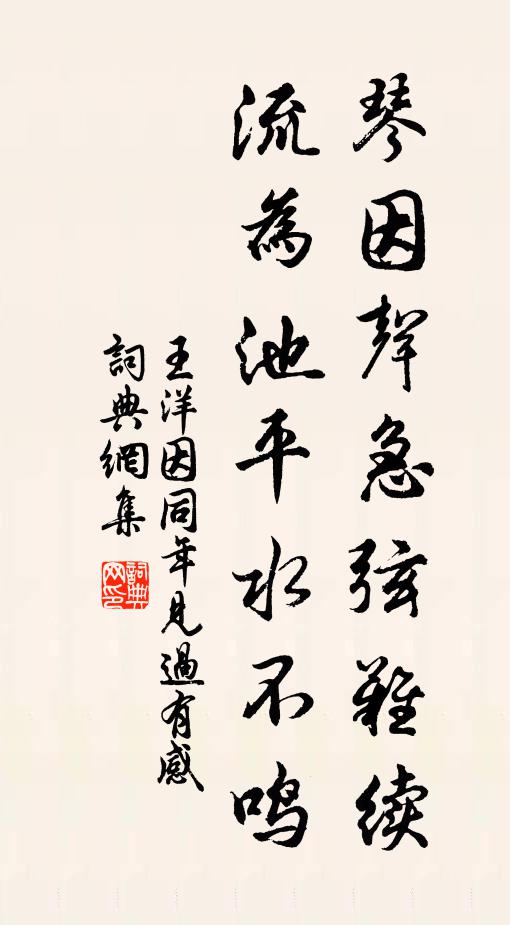 琴因聲急弦難续
流為池平水不鸣
王洋因同年見過有感
詞典網集
詞典网印